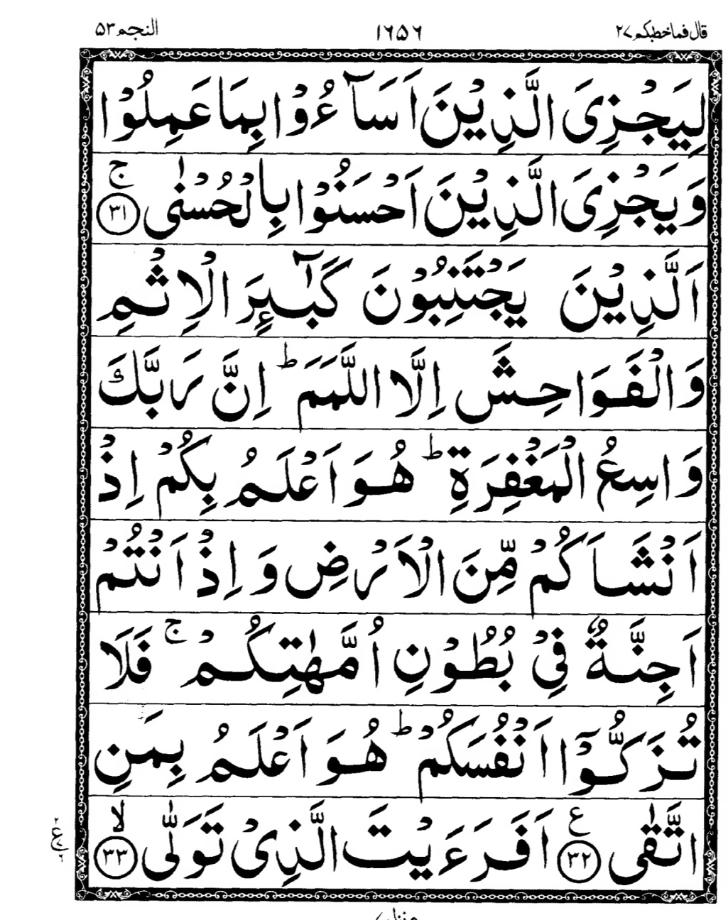 قال فما خطبكم ٢٧ ١٦٥٦ النجم ٥٣
لِيَجْزِىَ الَّذِيْنَ اَسَآءُوْا بِمَا عَمِلُوْا
وَيَجْزِىَ الَّذِيْنَ اَحْسَنُوْا بِالْحُسْنٰى ۚ ﴿٣١﴾
اَلَّذِيْنَ يَجْتَنِبُوْنَ كَبٰٓئِرَ الْاِثْمِ
وَالْفَوَاحِشَ اِلَّا اللَّمَمَ ؕ اِنَّ رَبَّكَ
وَاسِعُ الْمَغْفِرَةِ ؕ هُوَ اَعْلَمُ بِكُمْ اِذْ
اَنْشَاَكُمْ مِّنَ الْاَرْضِ وَاِذْ اَنْتُمْ
اَجِنَّةٌ فِيْ بُطُوْنِ اُمَّهٰتِكُمْ ۚ فَلَا
تُزَكُّوْٓا اَنْفُسَكُمْ ؕ هُوَ اَعْلَمُ بِمَنِ
اتَّقٰى ﴿٣٢﴾ ع اَفَرَءَيْتَ الَّذِىْ تَوَلّٰى ۙ ﴿٣٣﴾